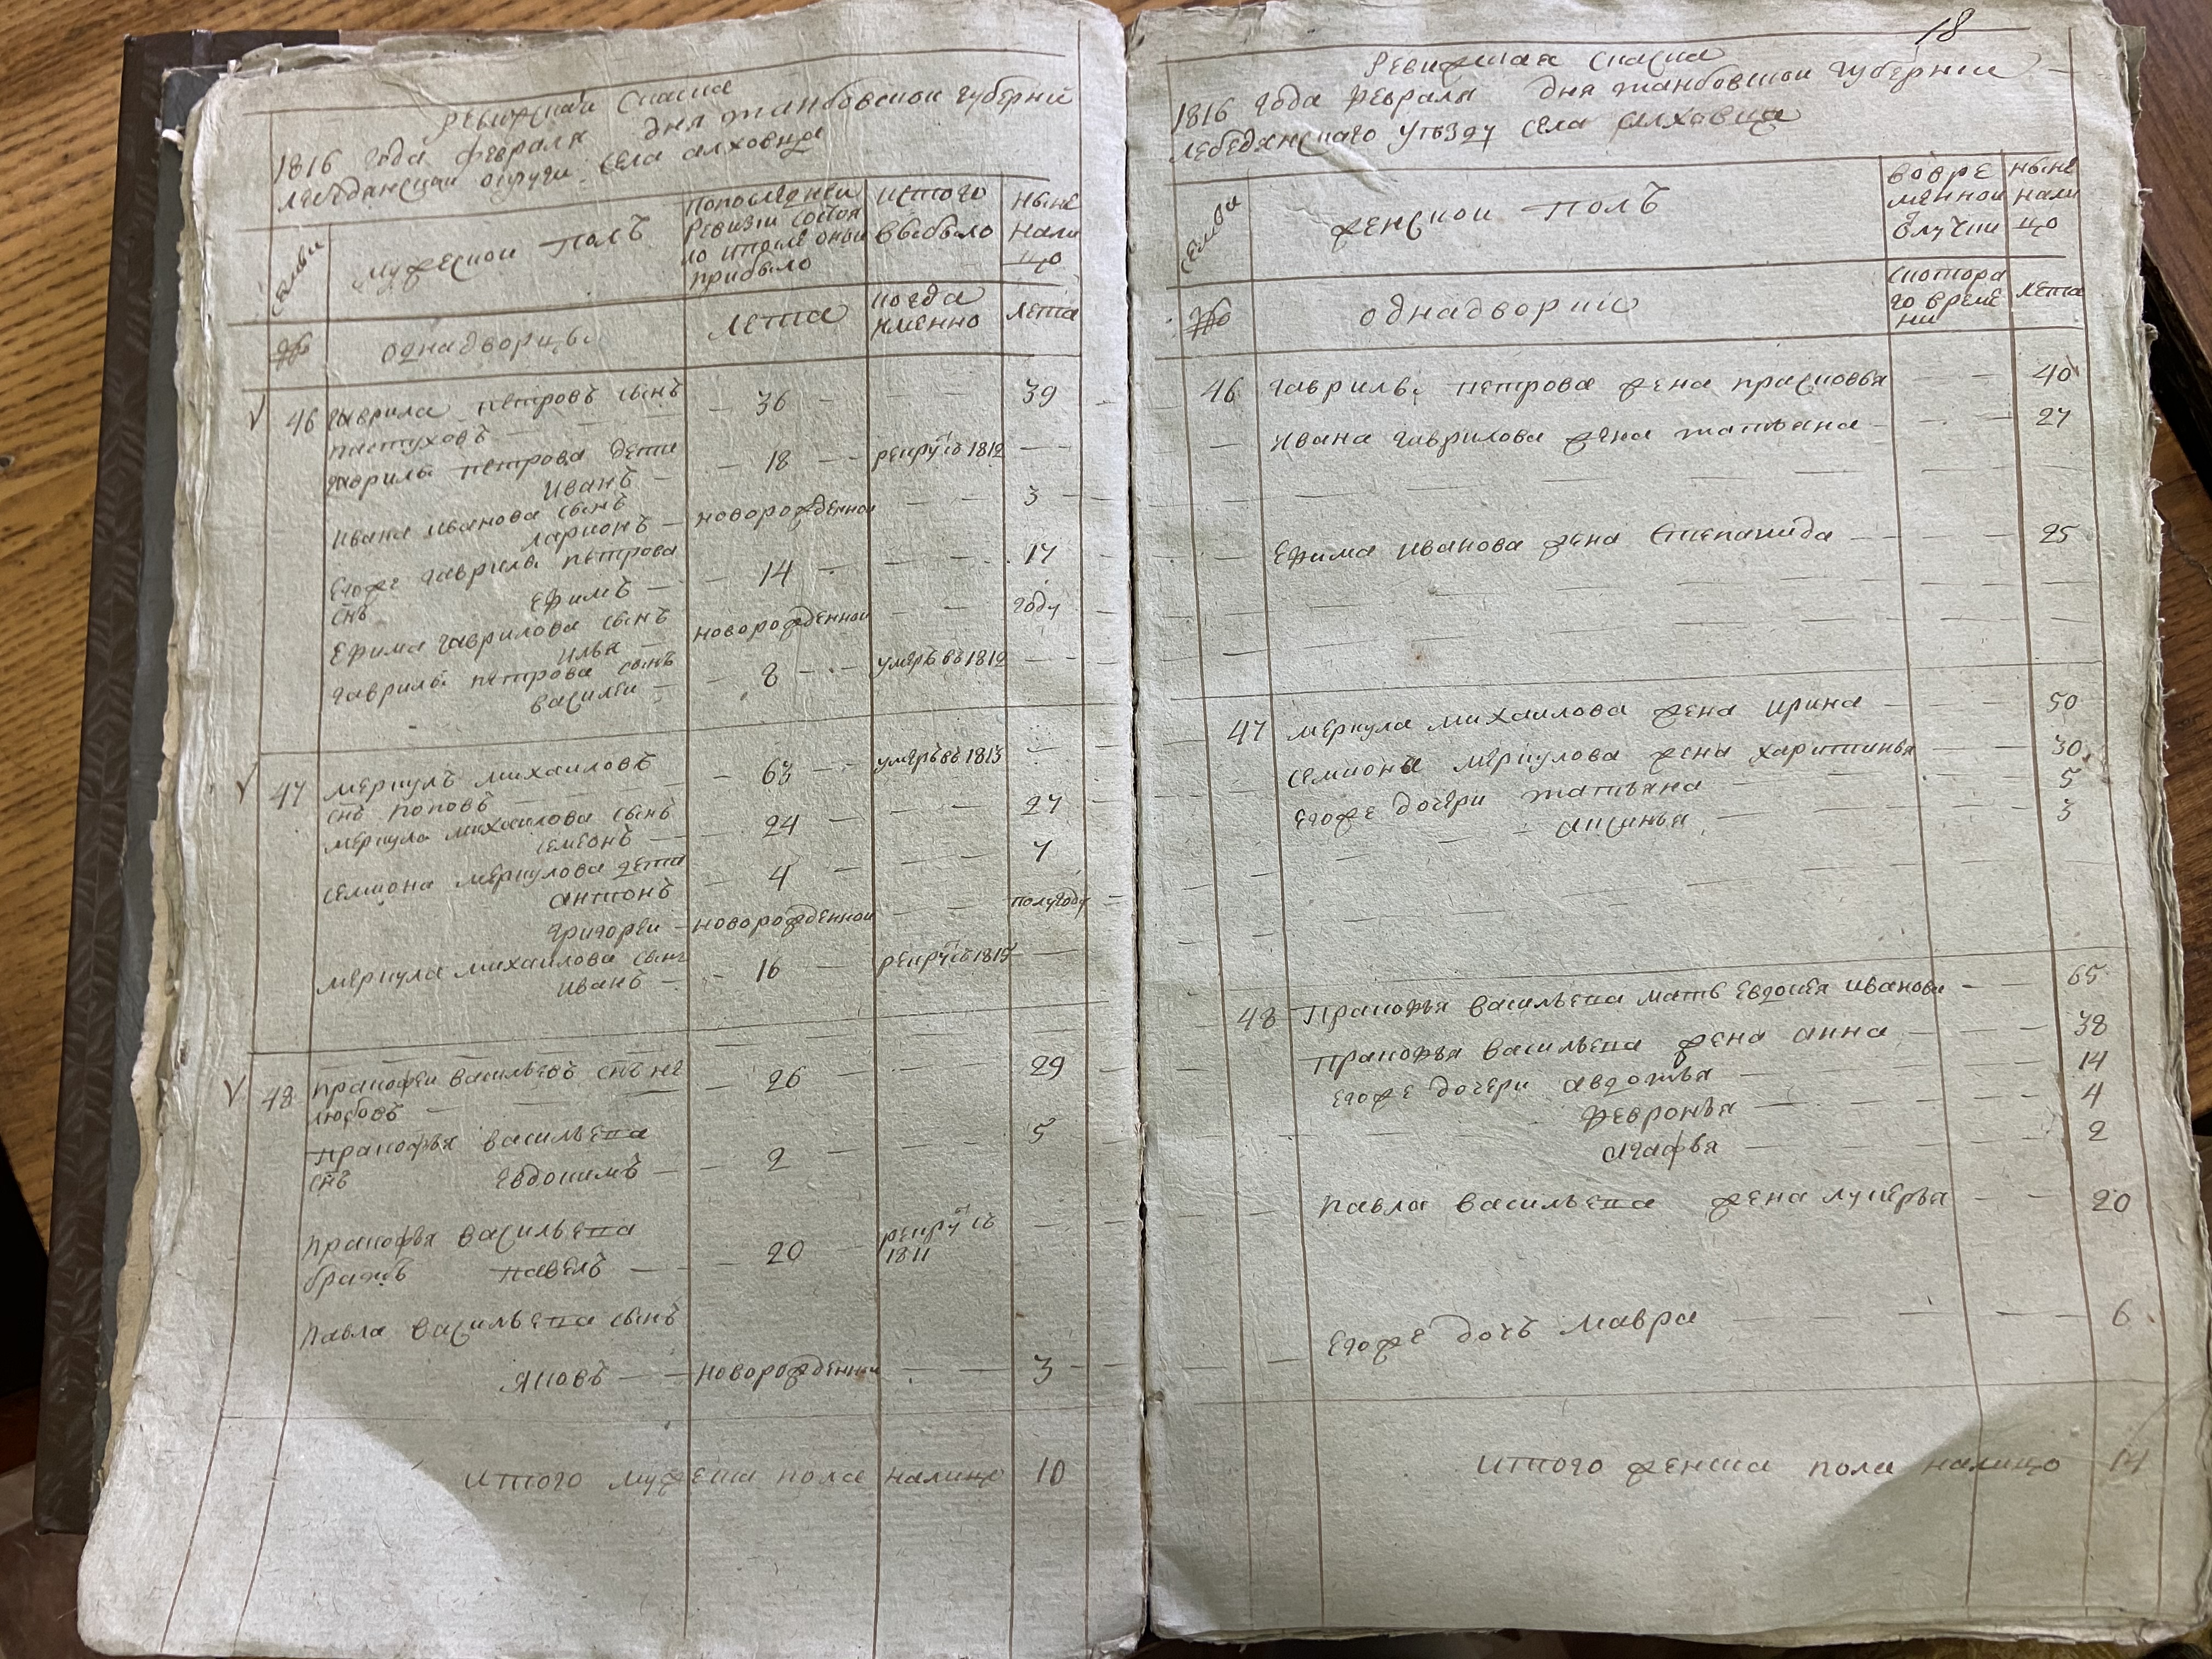 Ревижская Сказка
1816 года февраля дня танбовскои губерни
лебедянскои округи села алховца
Семьи
мужескои полъ
попоследнеи
Ревизи состоя
ло ипосле оныи
прибыло
истого
выбыло
ныне
нали
цо
№
однадворцы
лета
когда
имменно
лета
46 гаврила петровъ сынъ
пастуховъ
36
39
гаврилы петрова дети
Иванъ
18
рекрутъ 1812
Ивана иванова сынъ
ларионъ
новорожденнои
3
Егоже гаврила петрова
снъ ефимъ
14
17
Ефима гаврилова сынъ
илья
новорожденнои
году
гаврилы петрова сынъ
василеи
8
умеръ въ 1812
47 меркулъ михаиловъ
снъ поповъ
63
умеръ въ 1813
меркула михаилова сынъ
семеонъ
24
27
семиона меркулова дети
антонъ
4
7
григореи
новорожденнои
полугоду
меркула михаилова сынъ
иванъ
16
рекрутъ 1815
48 Пракофеи васильевъ снъ не
любовъ
26
29
Пракофья васильева
снъ Евдокимъ
2
5
Пракофья васильева
братъ павелъ
20
рекрутъ
1811
Павла васильева сынъ
яковъ
новорожденнои
3
Итого мужеска пола налицо 10
18
Ревижская Сказка
1816 года февраля дня танбовскои губернии
лебедянскаго уезду села алховца
семьи
женскои полъ
вовре
меннои
блучки
ныне
нали
цо
№
однадворки
скотора
го време
ни
лета
46 гаврилы петрова жена прасковья 40
Ивана гаврилова жена татьяна 27
Ефима иванова жена Степанида 25
47 меркула михаилова жена ирина 50
семионы меркулова жены харитинья 30
Егоже дочери татьяна 5
аксинья 3
48 Пракофья васильева мать Евдокея иванова 65
Пракофья васильева жена анна 38
Егоже дочери авдотья 14
Февронья 4
агафья 2
Павла васильева жена лукерья 20
Егоже дочъ мавра 6
Итого женска пола налицо 14